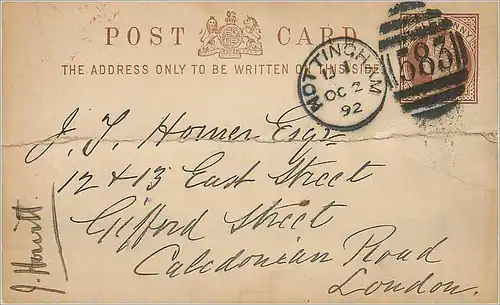 POST CARD
THE ADDRESS ONLY TO BE WRITTEN ON
NOTTINGHAM
OC 2
92
583
J. T. Horner Esqr
12 & 13 East Street
Gifford Street
Caledonian Road
London.
J. Howitt.